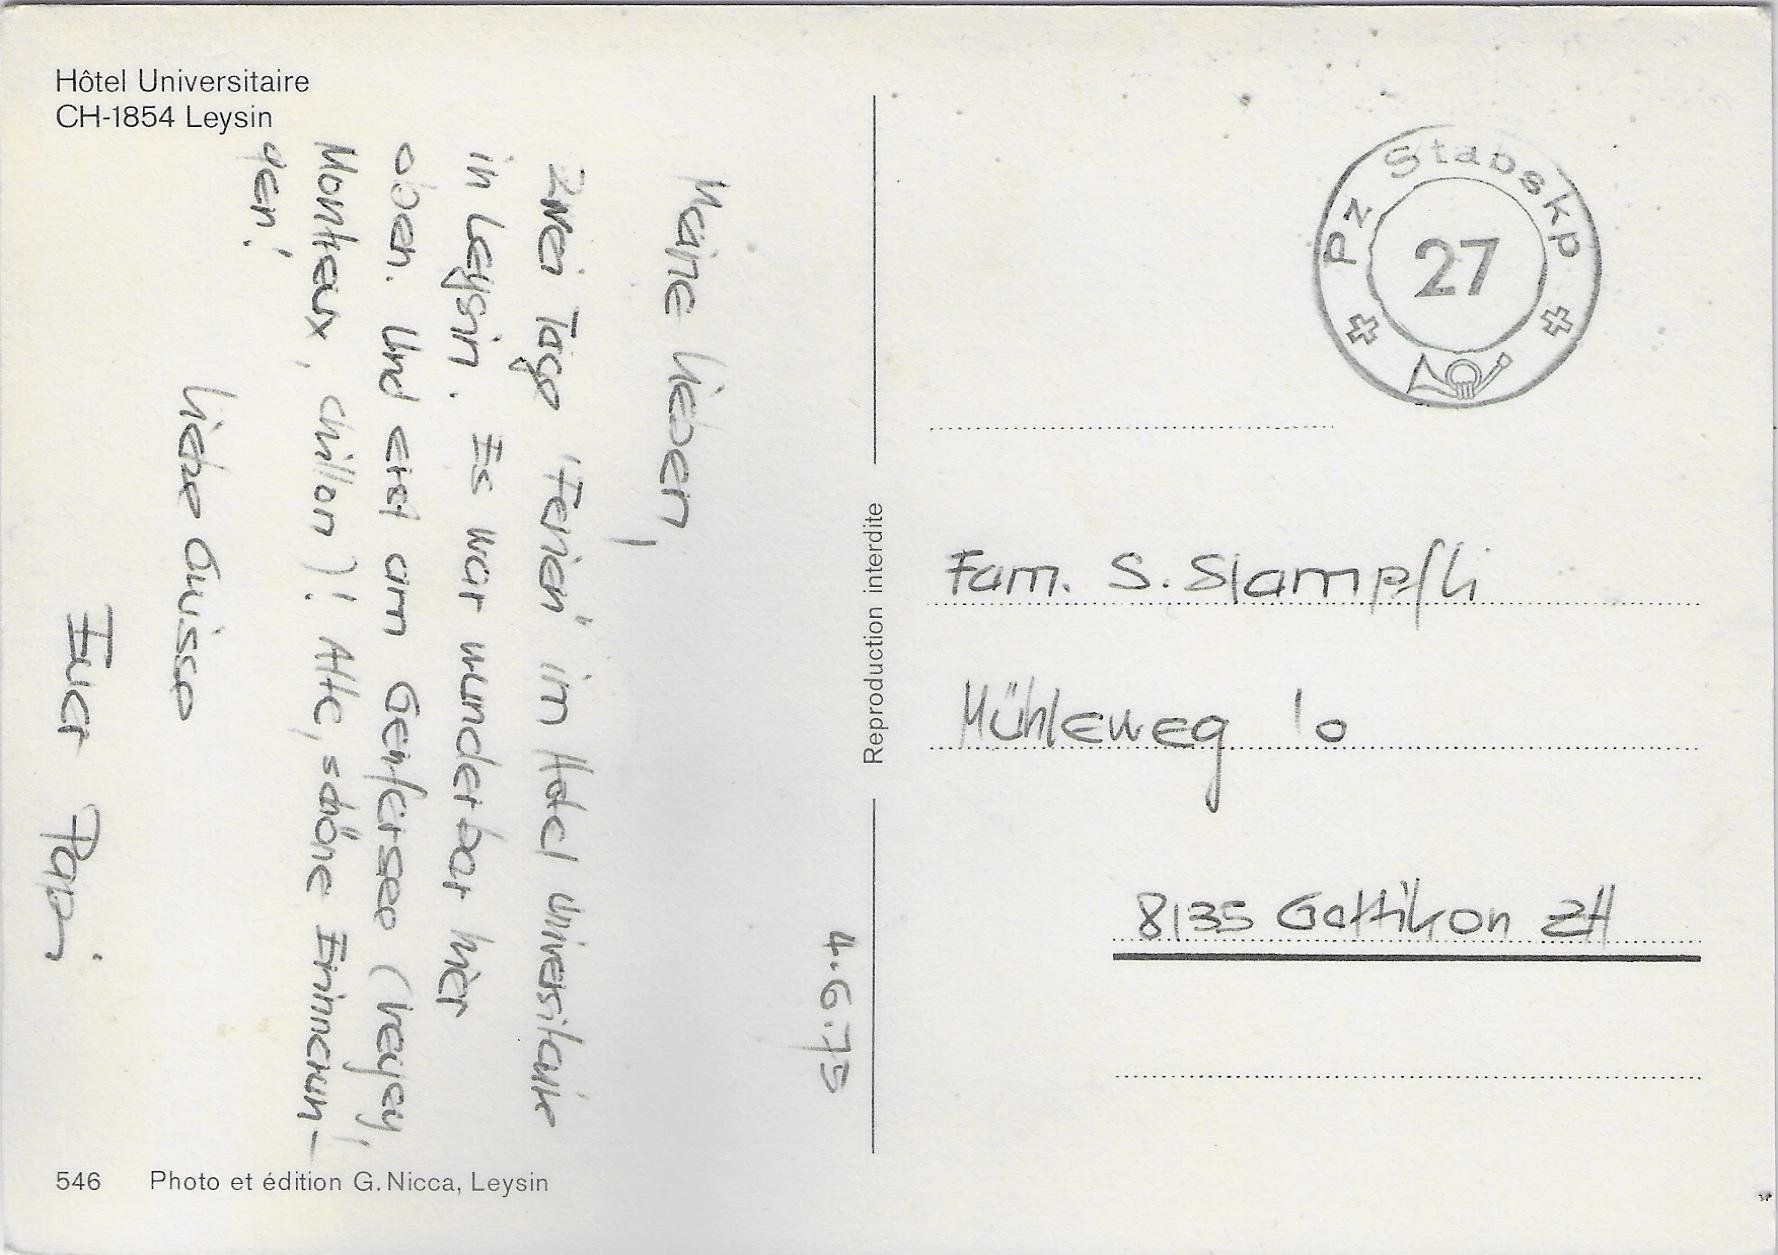 Hôtel Universitaire
CH-1854 Leysin
4.6.75
Meine Lieben,
Zwei Tage "Ferien" im Hotel Universitaire
in Leysin. Es war wunderbar hier
oben. Und erst am Genfersee (Vevey,
Montreux, Chillon)! Alte, schöne Erinnerun-
gen!
Liebe Grüsse
Euer Papi
546 Photo et édition G. Nicca, Leysin
Reproduction interdite
Pz Stabskp
27
Fam. S. Stampfli
Mühleweg 10
8135 Gattikon ZH